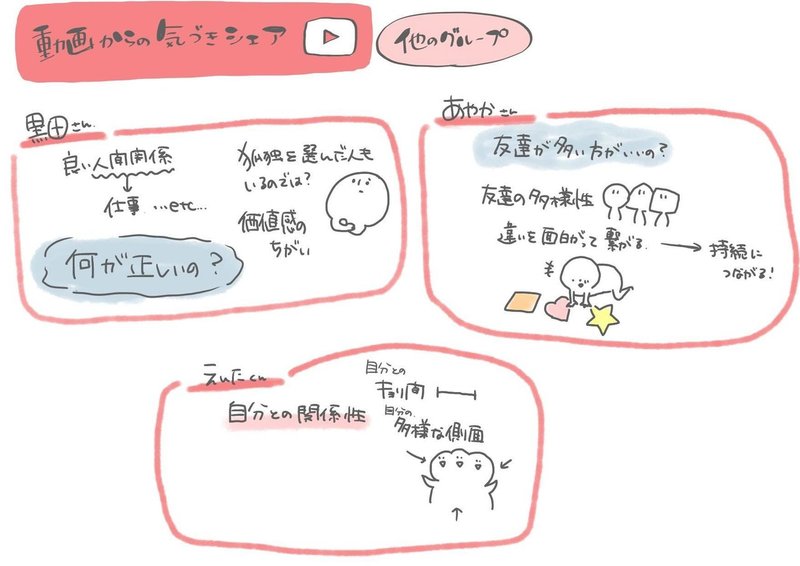 動画からの気づきシェア
他のグループ
黒田さん
良い人間関係
仕事 …etc…
孤独を選んだ人も
いるのでは?
価値感の
ちがい
何が正しいの?
あやかさん
友達が多い方がいいの?
友達の多様性
違いを面白がって繋がる
持続に
つながる!
えいたくん
自分との関係性
自分との
キョリ間
自分の
多様な側面